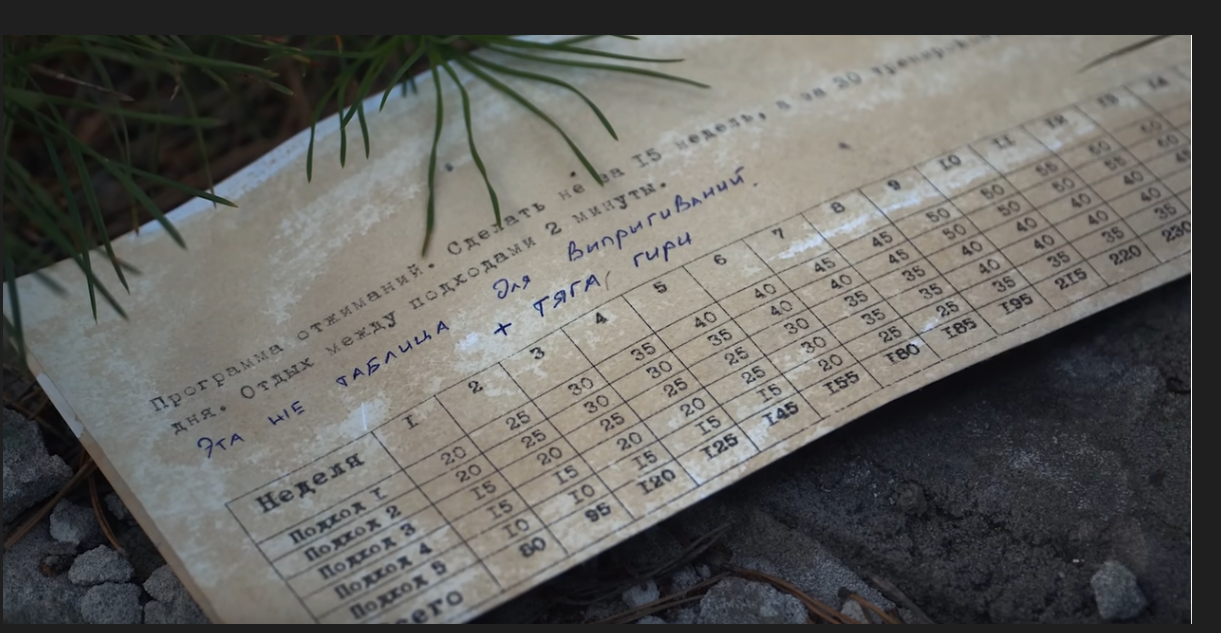 Программа отжиманий. Сделать не за I5 недель, а за 20
дня. Отдых между подходами 2 минуты.
Эта же ТАБЛИЦА для випригиваний.
+ ТЯГА гири
Неделя I 2 3 4 5 6 7 8 9 IO II I2 I3 I4
Подход I 20 25 30 35 40 40 45 45 50 50 55 60 60
Подход 2 20 25 30 30 35 40 40 45 50 50 50 55 60
Подход 3 I5 20 25 25 25 30 35 35 40 40 40 40 45
Подход 4 I5 I5 20 20 25 30 35 35 40 40 40 40
Подход 5 IO IO I5 I5 I5 20 25 25 35 35 35 35
его 80 95 I20 I25 I45 I55 I80 I85 I95 2I5 220 230